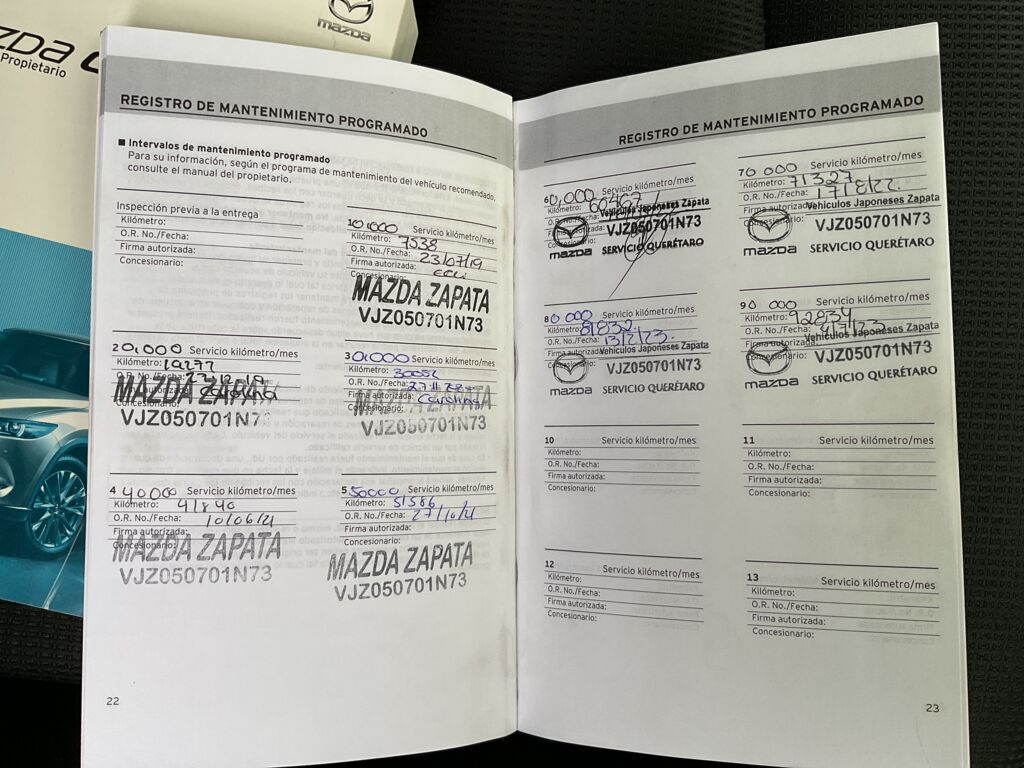 mazda
Propietario
REGISTRO DE MANTENIMIENTO PROGRAMADO
■ Intervalos de mantenimiento programado
Para su información, según el programa de mantenimiento del vehículo recomendado,
consulte el manual del propietario.
Inspección previa a la entrega
Kilómetro:
O.R. No./Fecha:
Firma autorizada:
Concesionario:
10,000 Servicio kilómetro/mes
Kilómetro: 7538
O.R. No./Fecha: 23/07/19
Firma autorizada:
Concesionario:
MAZDA ZAPATA
VJZ050701N73
2 20,000 Servicio kilómetro/mes
Kilómetro:
O.R. No./Fecha:
MAZDA ZAPATA
Concesionario:
VJZ050701N73
3 30,000 Servicio kilómetro/mes
Kilómetro: 30052
O.R. No./Fecha:
Firma autorizada: Carolina
Concesionario:
MAZDA ZAPATA
VJZ050701N73
4 40000 Servicio kilómetro/mes
Kilómetro: 41840
O.R. No./Fecha: 10/06/21
Firma autorizada:
Concesionario:
MAZDA ZAPATA
VJZ050701N73
5 50000 Servicio kilómetro/mes
Kilómetro: 51586
O.R. No./Fecha: 27/10/21
Firma autorizada:
Concesionario:
MAZDA ZAPATA
VJZ050701N73
22
REGISTRO DE MANTENIMIENTO PROGRAMADO
60,000 Servicio kilómetro/mes
Kilómetro: 60467
O.R. No./Fecha:
Vehiculos Japoneses Zapata
Firma autorizada:
VJZ050701N73
Concesionario:
mazda SERVICIO QUERÉTARO
70 000 Servicio kilómetro/mes
Kilómetro: 71327
O.R. No./Fecha: 17/8/22.
Firma autorizada: Vehiculos Japoneses Zapata
Concesionario: VJZ050701N73
mazda SERVICIO QUERÉTARO
80 000 Servicio kilómetro/mes
Kilómetro: 81832
O.R. No./Fecha: 13/2/23.
Firma autorizada: Vehiculos Japoneses Zapata
Concesionario: VJZ050701N73
mazda SERVICIO QUERÉTARO
90 000 Servicio kilómetro/mes
Kilómetro: 92834
O.R. No./Fecha: 4/7/23
Firma autorizada: Vehiculos Japoneses Zapata
Concesionario: VJZ050701N73
mazda SERVICIO QUERÉTARO
10 Servicio kilómetro/mes
Kilómetro:
O.R. No./Fecha:
Firma autorizada:
Concesionario:
11 Servicio kilómetro/mes
Kilómetro:
O.R. No./Fecha:
Firma autorizada:
Concesionario:
12 Servicio kilómetro/mes
Kilómetro:
O.R. No./Fecha:
Firma autorizada:
Concesionario:
13 Servicio kilómetro/mes
Kilómetro:
O.R. No./Fecha:
Firma autorizada:
Concesionario:
23